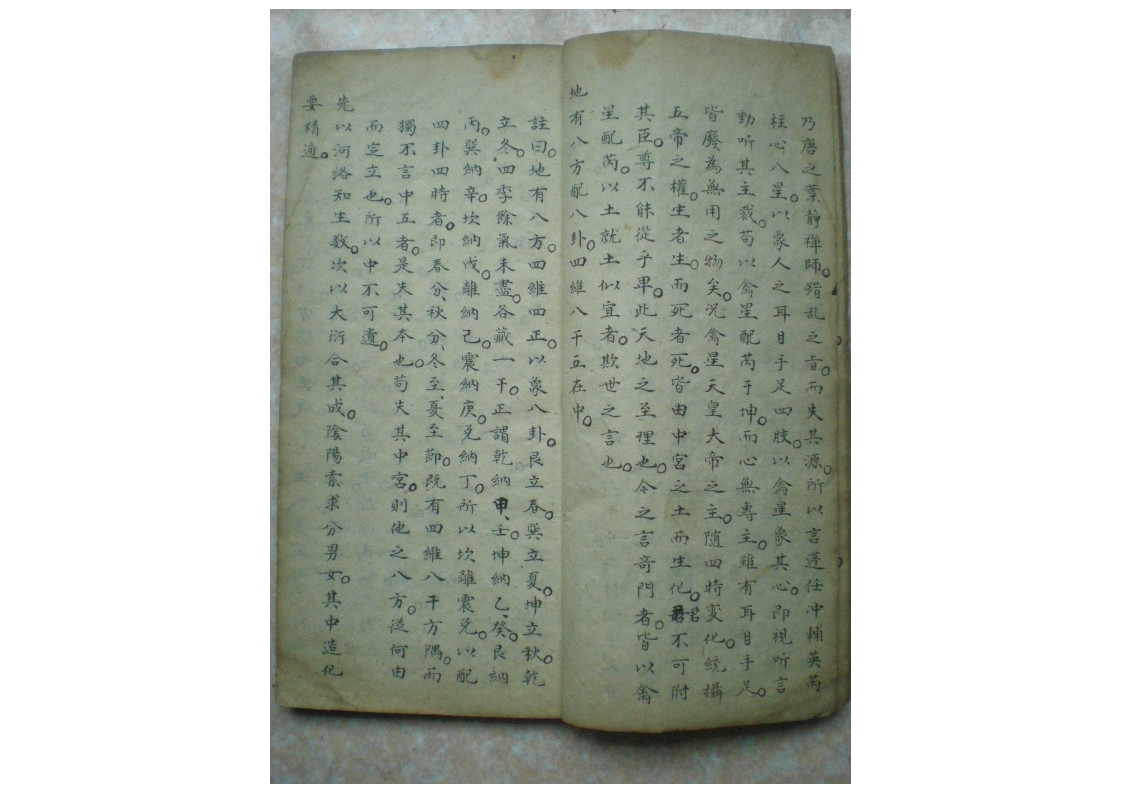 乃唐之葉靜禪師。錯乱之旨。而失其源。所以言蓬任冲輔英芮
柱心八星。以象人之耳目手足四肢。以禽星象其心。即視听言
動听其主裁。苟以禽星配芮于坤。而心無專主。雖有耳目手足。
皆廢為無用之物矣。况禽星天皇大帝之主。随四時変化。統攝
五帝之權。生者生。而死者死。皆由中宮之土而生化。君不可附
其臣。尊不能從乎畢。此天地之至理也。今之言奇門者。皆以禽
星配芮。以土就土似宜者。欺世之言也。
地有八方配八卦。四維八干五在中。
註曰。地有八方。四維四正。以象八卦。艮立春。巽立夏。坤立秋。乾
立冬。四季餘氣未盡。各藏一干。正謂乾納甲、壬。坤納乙、癸。艮納
丙。巽納辛。坎納戊。離納己。震納庚。兑納丁。所以坎離震兑。以配
四卦四時者。即春分、秋分、冬至、夏至節。既有四維八干方隅。而
獨不言中五者。是失其本也。苟失其中宮。則他之八方。從何由
而定立也。所以中不可遺。
先以河洛知生数。次以大衍合其成。陰陽索求分男女。其中造化
要精通。